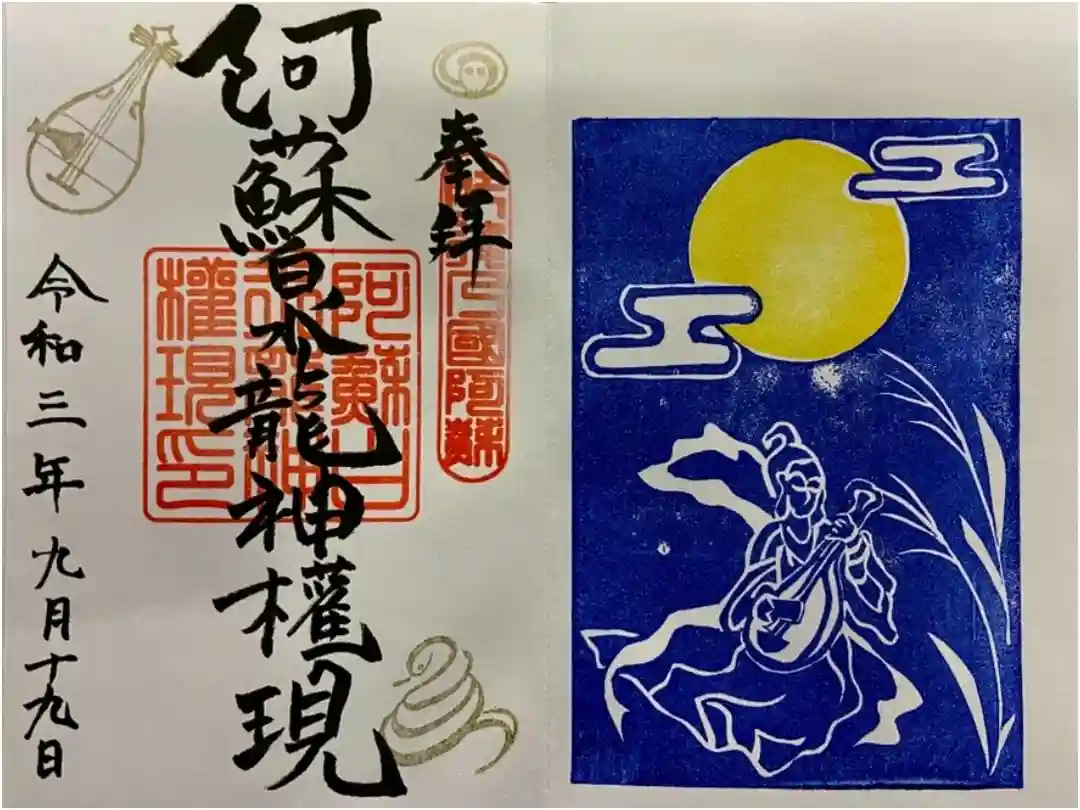 奉拝
國阿蘇
阿蘇白水龍神權現
阿蘇白
水龍神
權現印
令和三年九月十九日